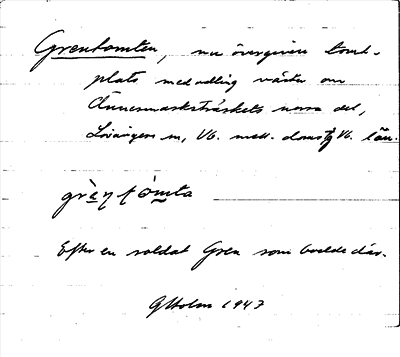 Grentomten, nu övergiven tomt-
plats med odling väster om
träskets norra del,
Lövångers sn, Vb. mell. domsg Vb. län.
grèntòmta
Efter en soldat Gren som bodde där.
GHolm 1947